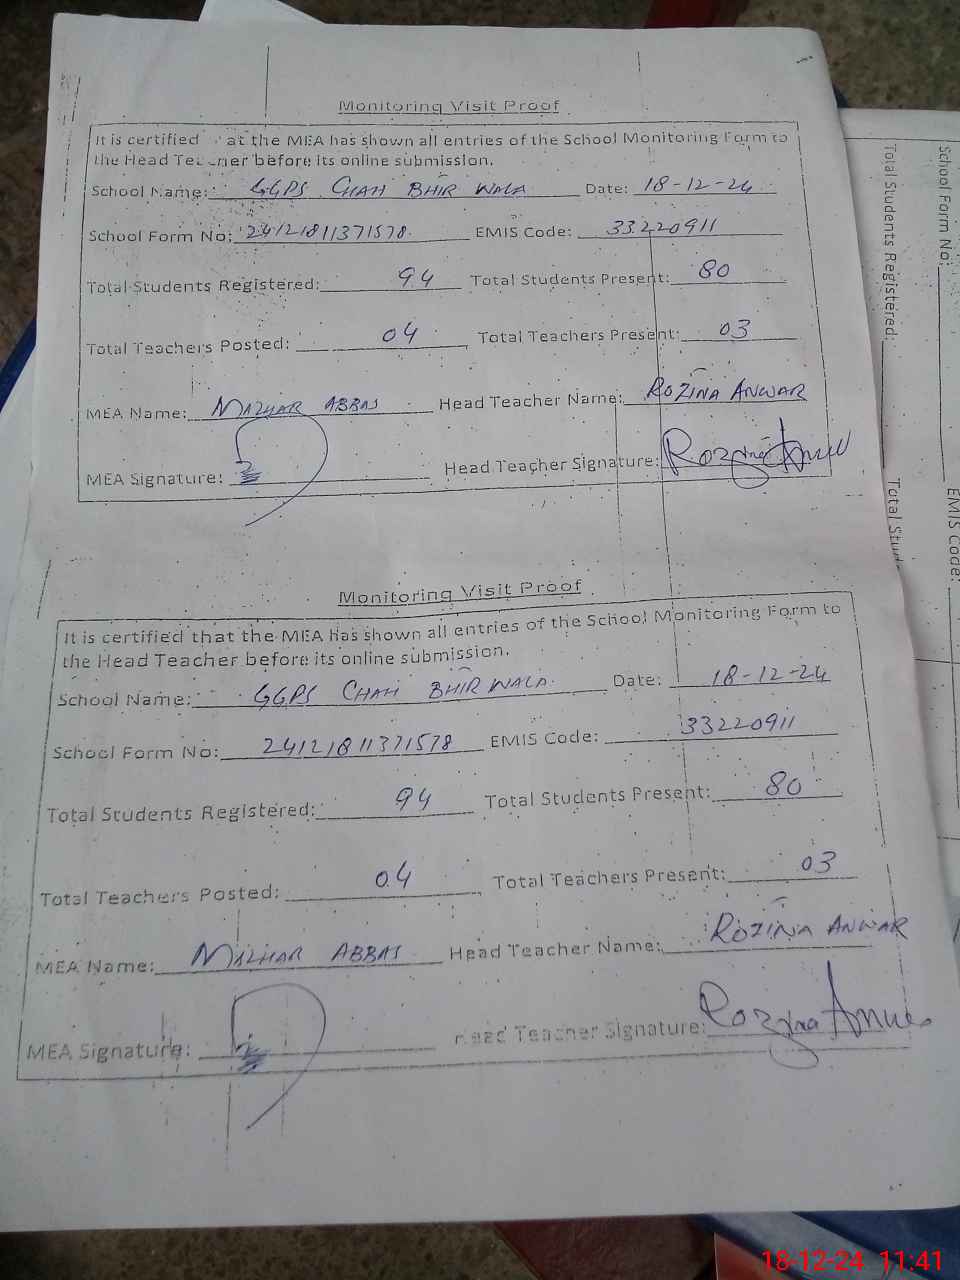 Monitoring Visit Proof
It is certified at the MEA has shown all entries of the School Monitoring Form to
the Head Teacher before its online submission.
School Name: GGPS CHAH BHIR WALA Date: 18-12-24
School Form No: 24121811371578 EMIS Code: 33220911
Total Students Registered: 94 Total Students Present: 80
Total Teachers Posted: 04 Total Teachers Present: 03
MEA Name: MAZHAR ABBAS Head Teacher Name: ROZINA ANWAR
MEA Signature: Head Teacher Signature: Rozina Anwar
Monitoring Visit Proof
It is certified that the MEA has shown all entries of the School Monitoring Form to
the Head Teacher before its online submission.
School Name: GGPS CHAH BHIR WALA Date: 18-12-24
School Form No: 24121811371578 EMIS Code: 33220911
Total Students Registered: 94 Total Students Present: 80
Total Teachers Posted: 04 Total Teachers Present: 03
MEA Name: MAZHAR ABBAS Head Teacher Name: ROZINA ANWAR
MEA Signature: Head Teacher Signature: Rozina Anwar
School Form No: EMIS Code:
Total Students Registered: Total Stud
18-12-24 11:41